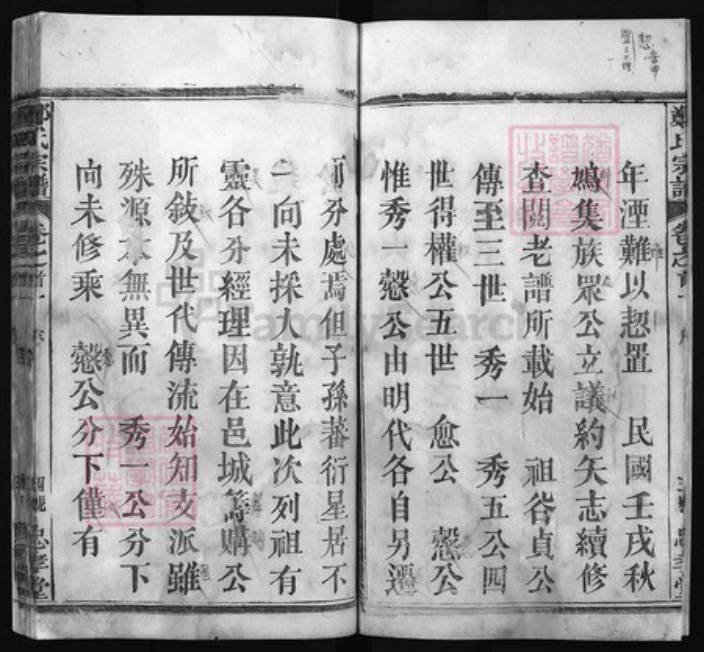 鄭氏宗譜
年湮難以恝置　民國壬戌秋
鳩集族眾公立議約矢志續修
查閱老譜所載始　祖谷貞公
傳至三世　秀一　秀五公四
世得權公五世　愈公　愨公
惟秀一愨公由明代各自另遷
而分處焉但子孫蕃衍星居不
一向未採人孰意此次列祖有
靈各分經理因在邑城籌購公
所敍及世代傳流始知支派雖
殊源本無異而　秀一公分下
向未修乘　愨公分下僅有
鄭氏宗譜
卷之首
忠孝堂
FamilySearch